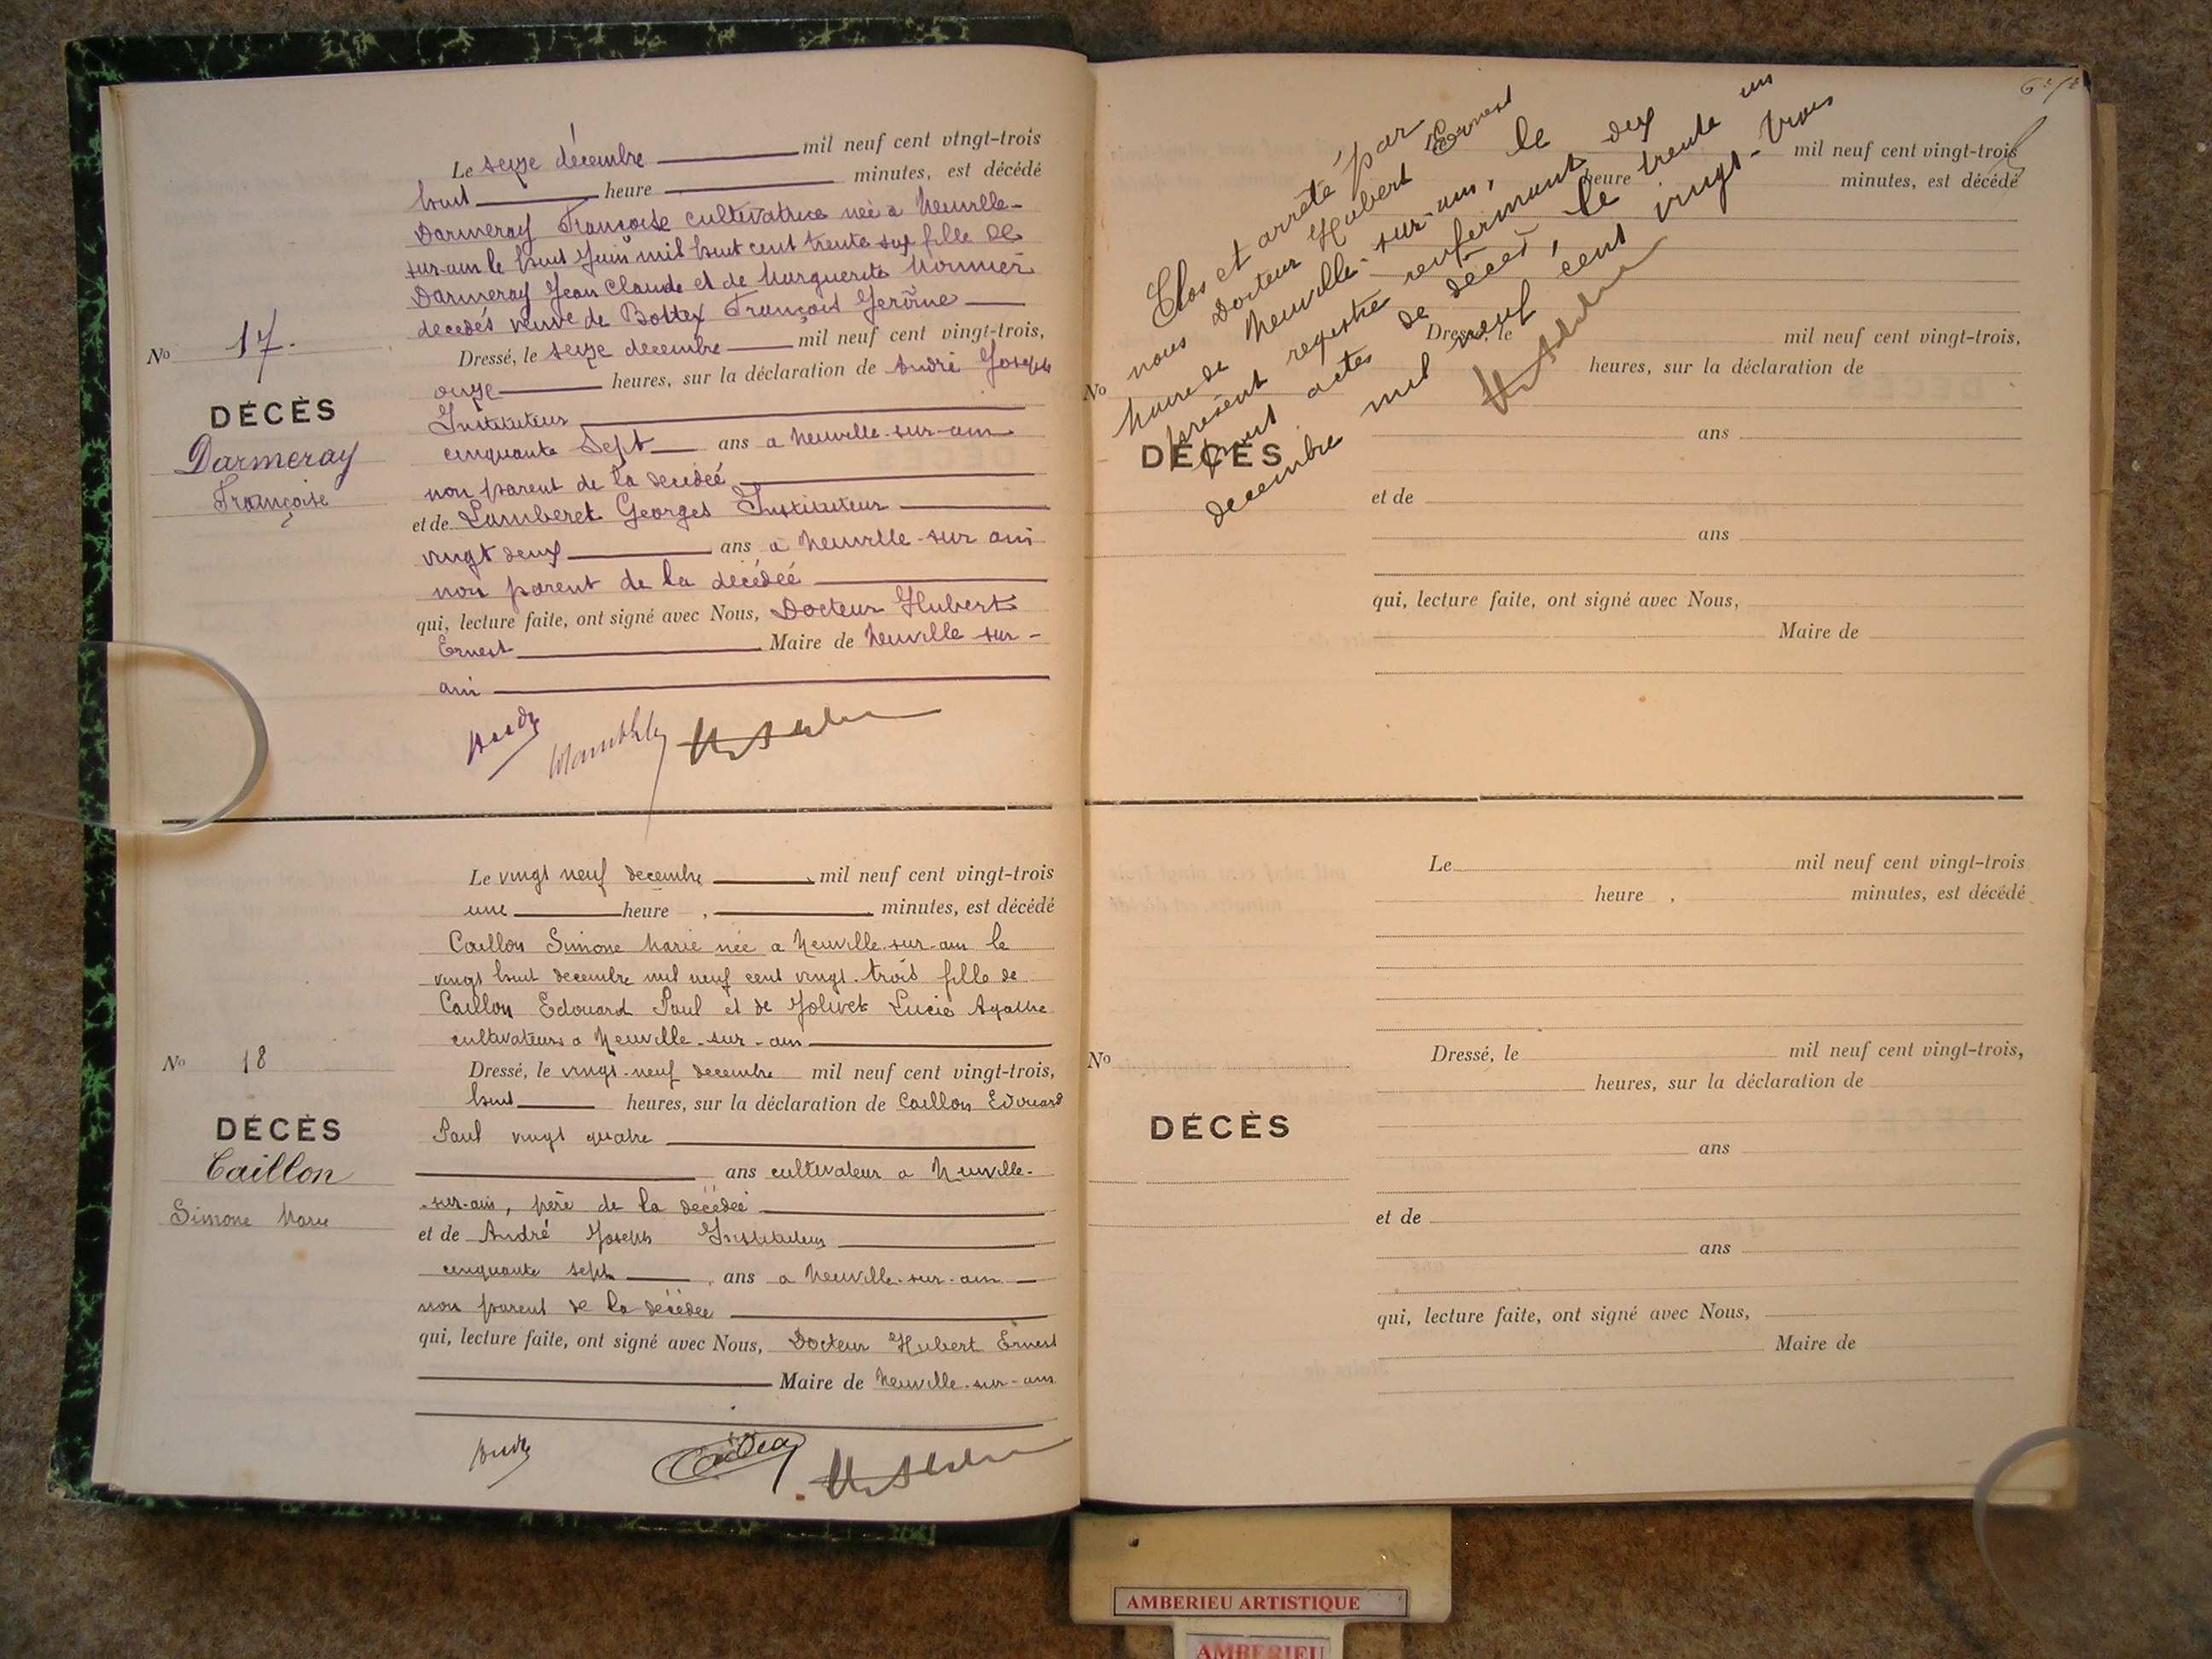 Le seize décembre mil neuf cent vingt-trois
huit heure minutes, est décédé
Darmeray Françoise cultivatrice née à Neuville-
sur-ain le huit Juin mil huit cent trente six fille de
Darmeray Jean Claude et de Marguerite Monnier
décédés veuve de Bottex François Jerôme
No 17.
DÉCÈS
Darmeray
Françoise
Dressé, le seize décembre mil neuf cent vingt-trois,
onze heures, sur la déclaration de André Joseph
Instituteur
cinquante sept ans a Neuville-sur-ain
non parent de la décédée
et de Lamberet Georges Instituteur
vingt deux ans a Neuville-sur ain
non parent de la décédée
qui, lecture faite, ont signé avec Nous, Docteur Hubert
Ernest Maire de Neuville-sur-
ain
Le vingt neuf decembre mil neuf cent vingt-trois
une heure , minutes, est décédé
Caillon Simone Marie née a Neuville-sur-ain le
vingt huit decembre mil neuf cent vingt-trois fille de
Caillon Edouard Paul et de Jolivet Lucie Agathe
cultivateurs a Neuville-sur-ain
No 18
DÉCÈS
Caillon
Simone Marie
Dressé, le vingt-neuf decembre mil neuf cent vingt-trois,
huit heures, sur la déclaration de Caillon Edouard
Paul vingt quatre
ans cultivateur a Neuville-
-sur-ain, père de la décédée
et de André Joseph Instituteur
cinquante sept ans a Neuville-sur-ain
non parent de la décédée
qui, lecture faite, ont signé avec Nous, Docteur Hubert Ernest
Maire de Neuville-sur-ain
Clos et arrêté par
nous Docteur Hubert Ernest
Maire de Neuville-sur-ain, le
présent registre renfermant dix
huit actes de décès, le trente un
decembre mil neuf cent vingt-trois
mil neuf cent vingt-trois
heure minutes, est décédé
No
DÉCÈS
Dressé, le mil neuf cent vingt-trois,
heures, sur la déclaration de
ans
et de
ans
qui, lecture faite, ont signé avec Nous,
Maire de
Le mil neuf cent vingt-trois
heure , minutes, est décédé
No
DÉCÈS
Dressé, le mil neuf cent vingt-trois,
heures, sur la déclaration de
ans
et de
ans
qui, lecture faite, ont signé avec Nous,
Maire de
AMBERIEU ARTISTIQUE
AMBERIEU